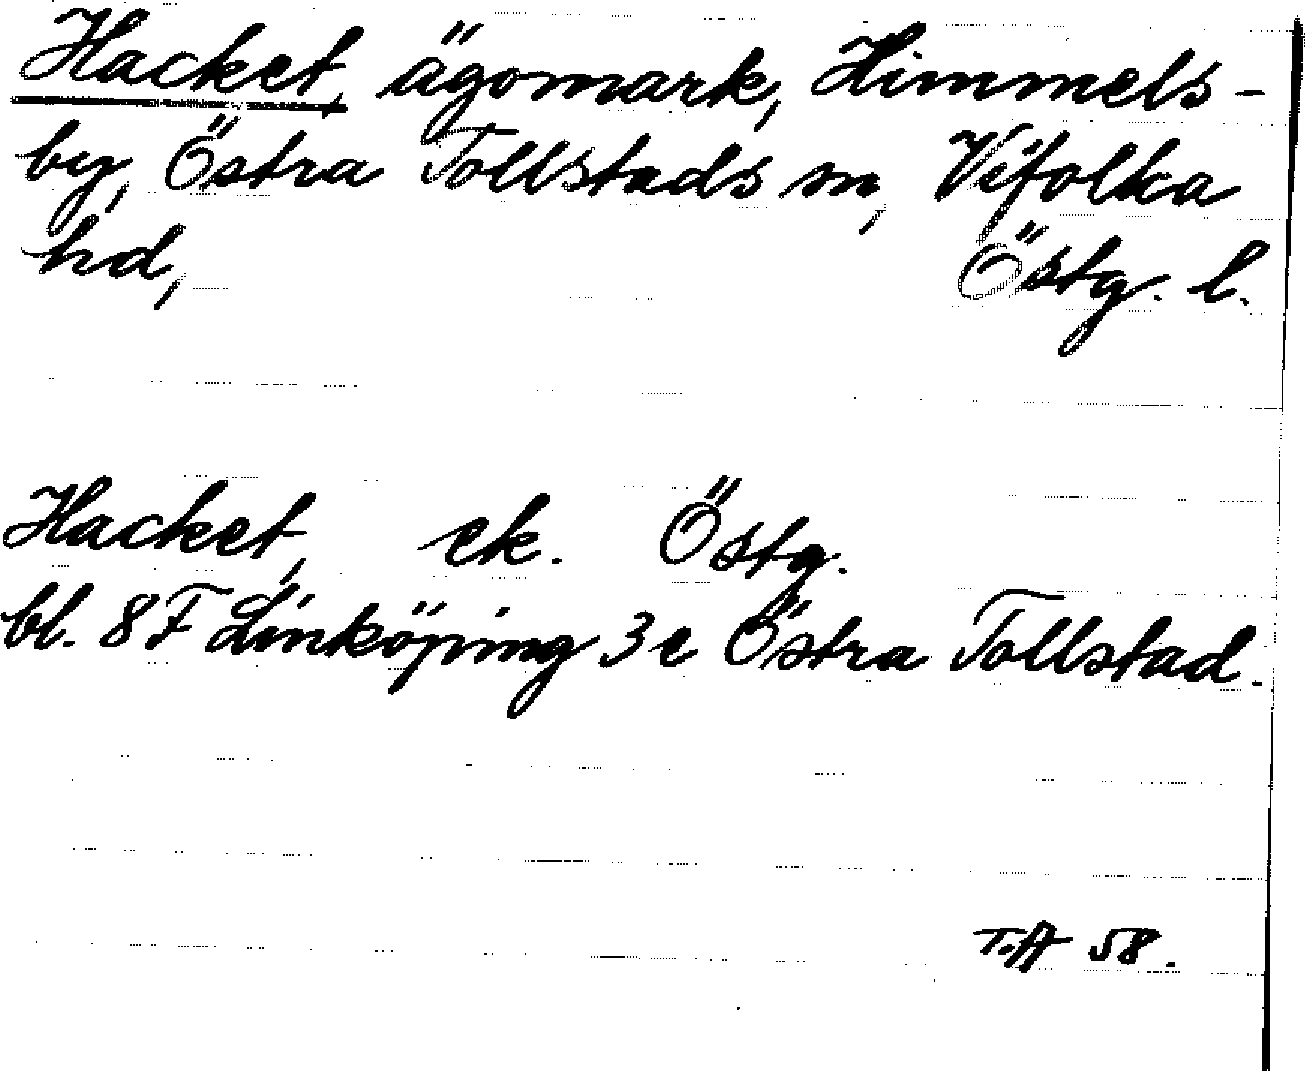 Hacket, ägomark, Himmels-
by, Östra Tollstads sn, Vifolka
hd, Östg. l.
Hacket, ek. Östg.
bl. 8F Linköping 3e Östra Tollstad.
T.A 58.